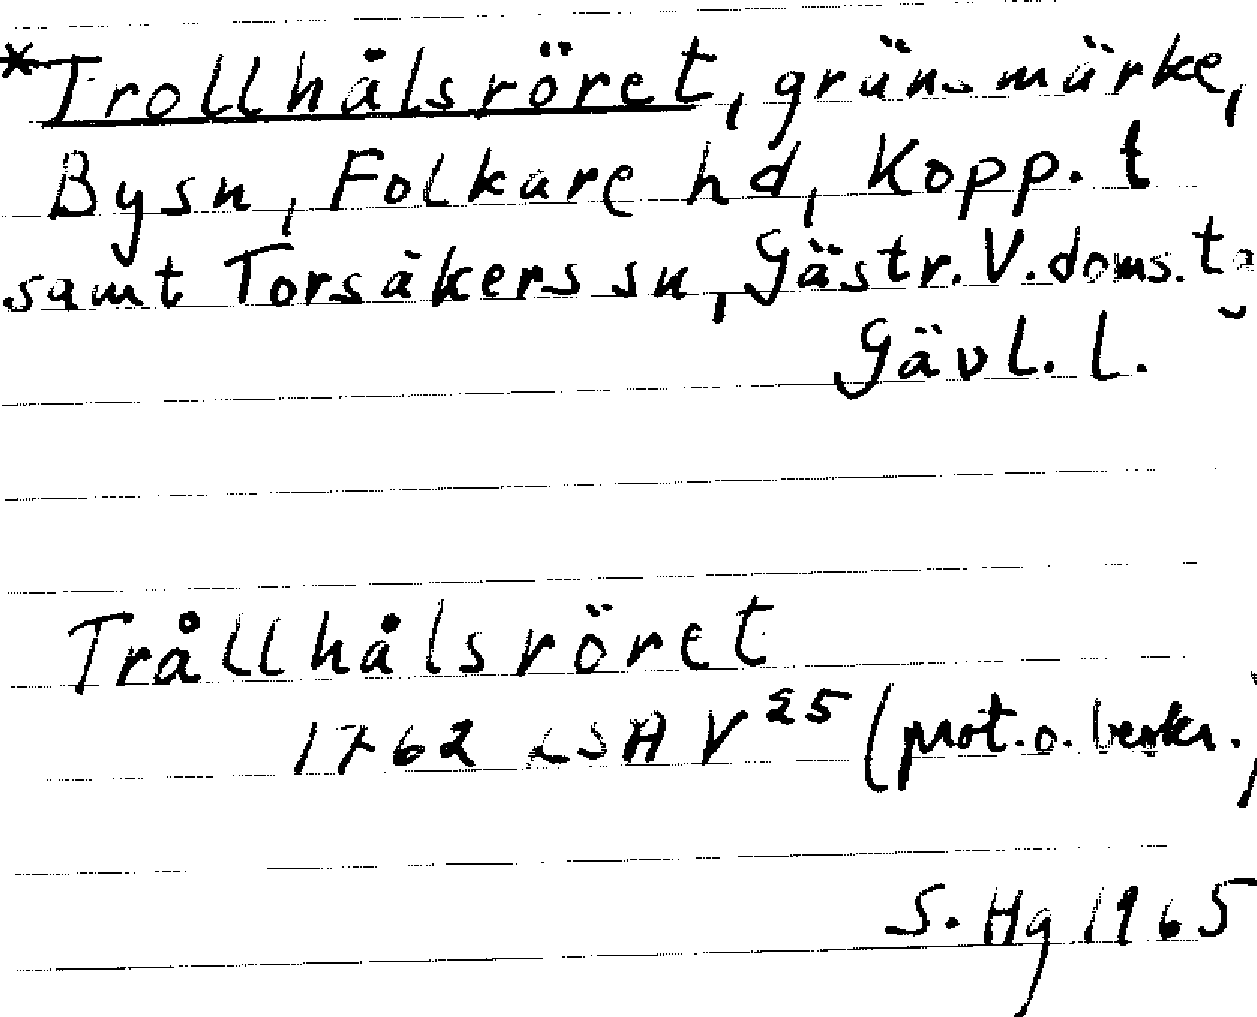 *Trollhålsröret, gränsmärke,
By sn, Folkare hd, Kopp. l
samt Torsåkers sn, Gästr. V. doms.
Gävl. l.
Trållhålsröret
1762 LSA V25 (prot. o. beskr.)
S. Hg 1965